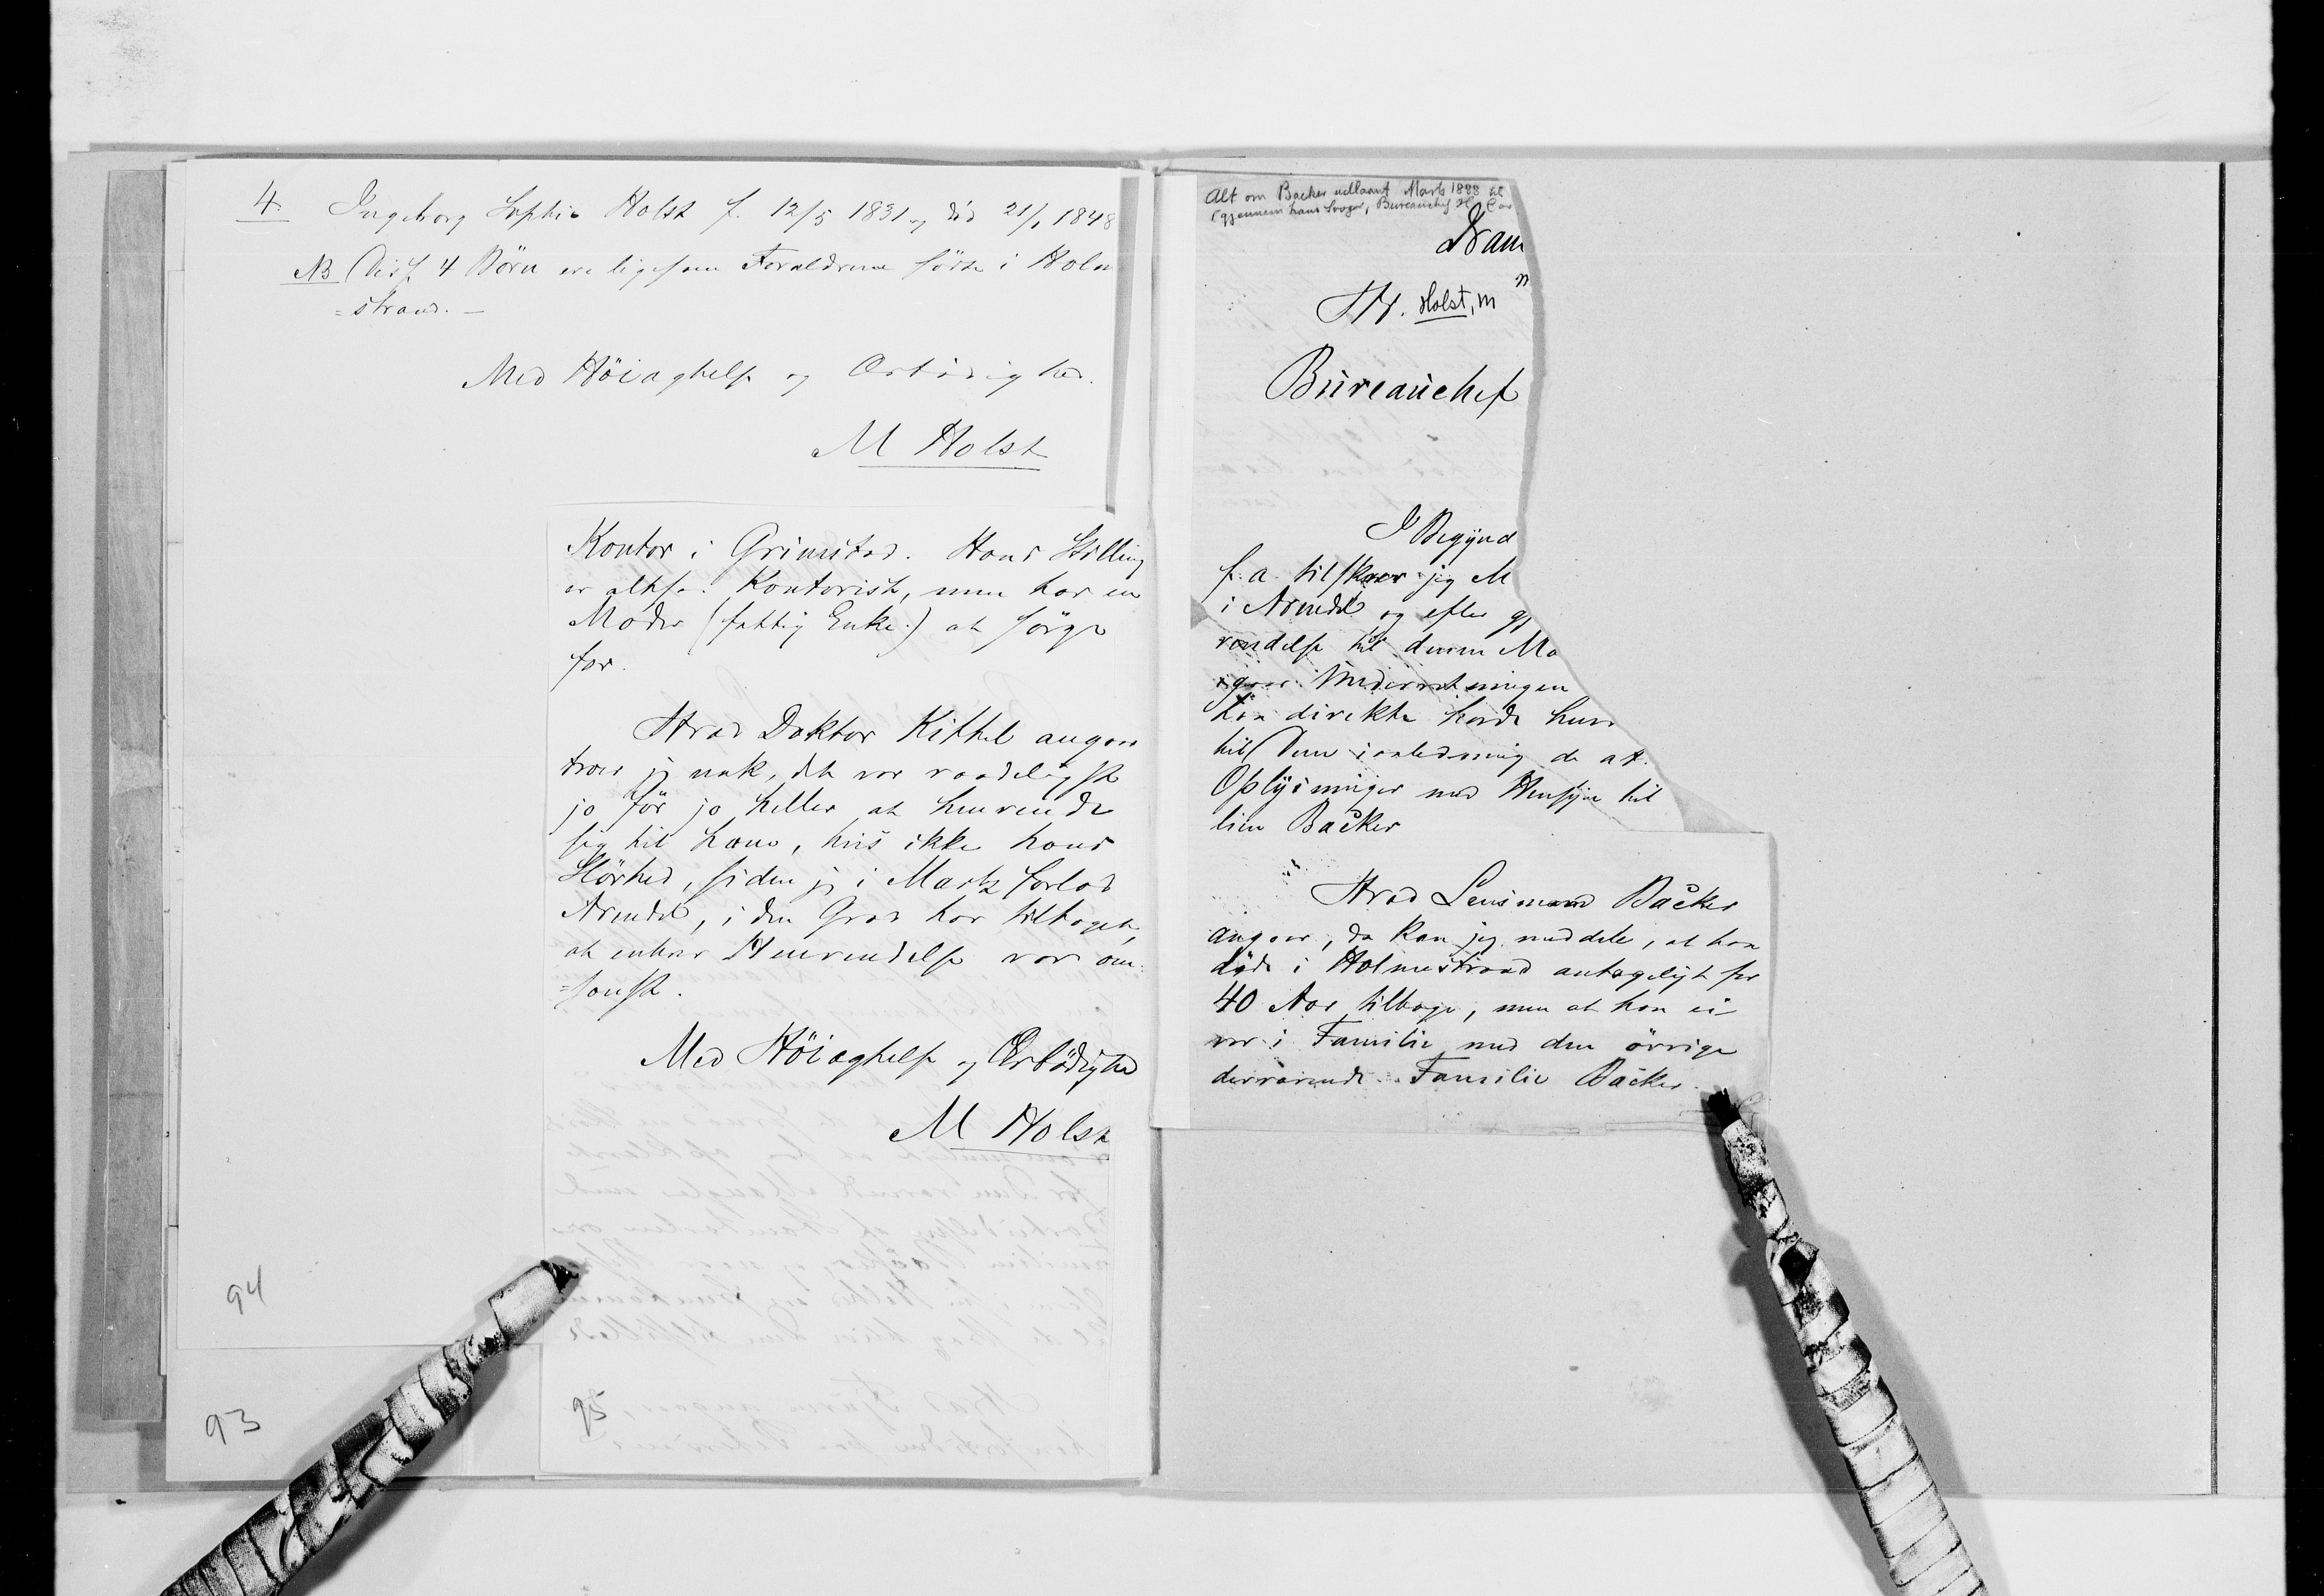 4. Ingeborg Sophie Holst f. 12/5 1831 og död 21/1 1848
NB Disse 4 Børn ere ligesom Forældrene födte i Holm
=strand. —
Med Höiagtelse og Ærbödighed.
M Holst
Kontor i Grimstad. Hans Stilling
er altsaa Kontorist, men har en
Moder (fattig Enke) at sörge
for.
Hvad Doktor Kittel angaar
troer jeg nok, det var raadeligst
jo för jo heller at henvende
sig til ham, hvis ikke hans
Slövhed, siden jeg i Marts forlod
Arendal, i den Grad har tiltaget,
at enhver Henvendelse var om=
=sonst.
Med Höiagtelse og Ærbödighed
M Holst
94
93
95
Alt om Backer udlaant Marts 1888 til
(gjennem hans Svoger, Bureauchef H.
Dram
Hr. Holst, M
Bureauchef
I Begynd
f. a. tilskrev jeg M
i Arendal og efter gj
vendelse til denne Ma
Underretningen
han direkte havde hen
til Dem i anledning de af
Oplysninger med Hensyn til
lien Backer
Hvad Lensmand Backer
angaar, da kan jeg meddele, at han
döde i Holmestrand antageligt for
40 Aar tilbage, men at han ei
var i Familie med den övrige
derværende Familie Backer.